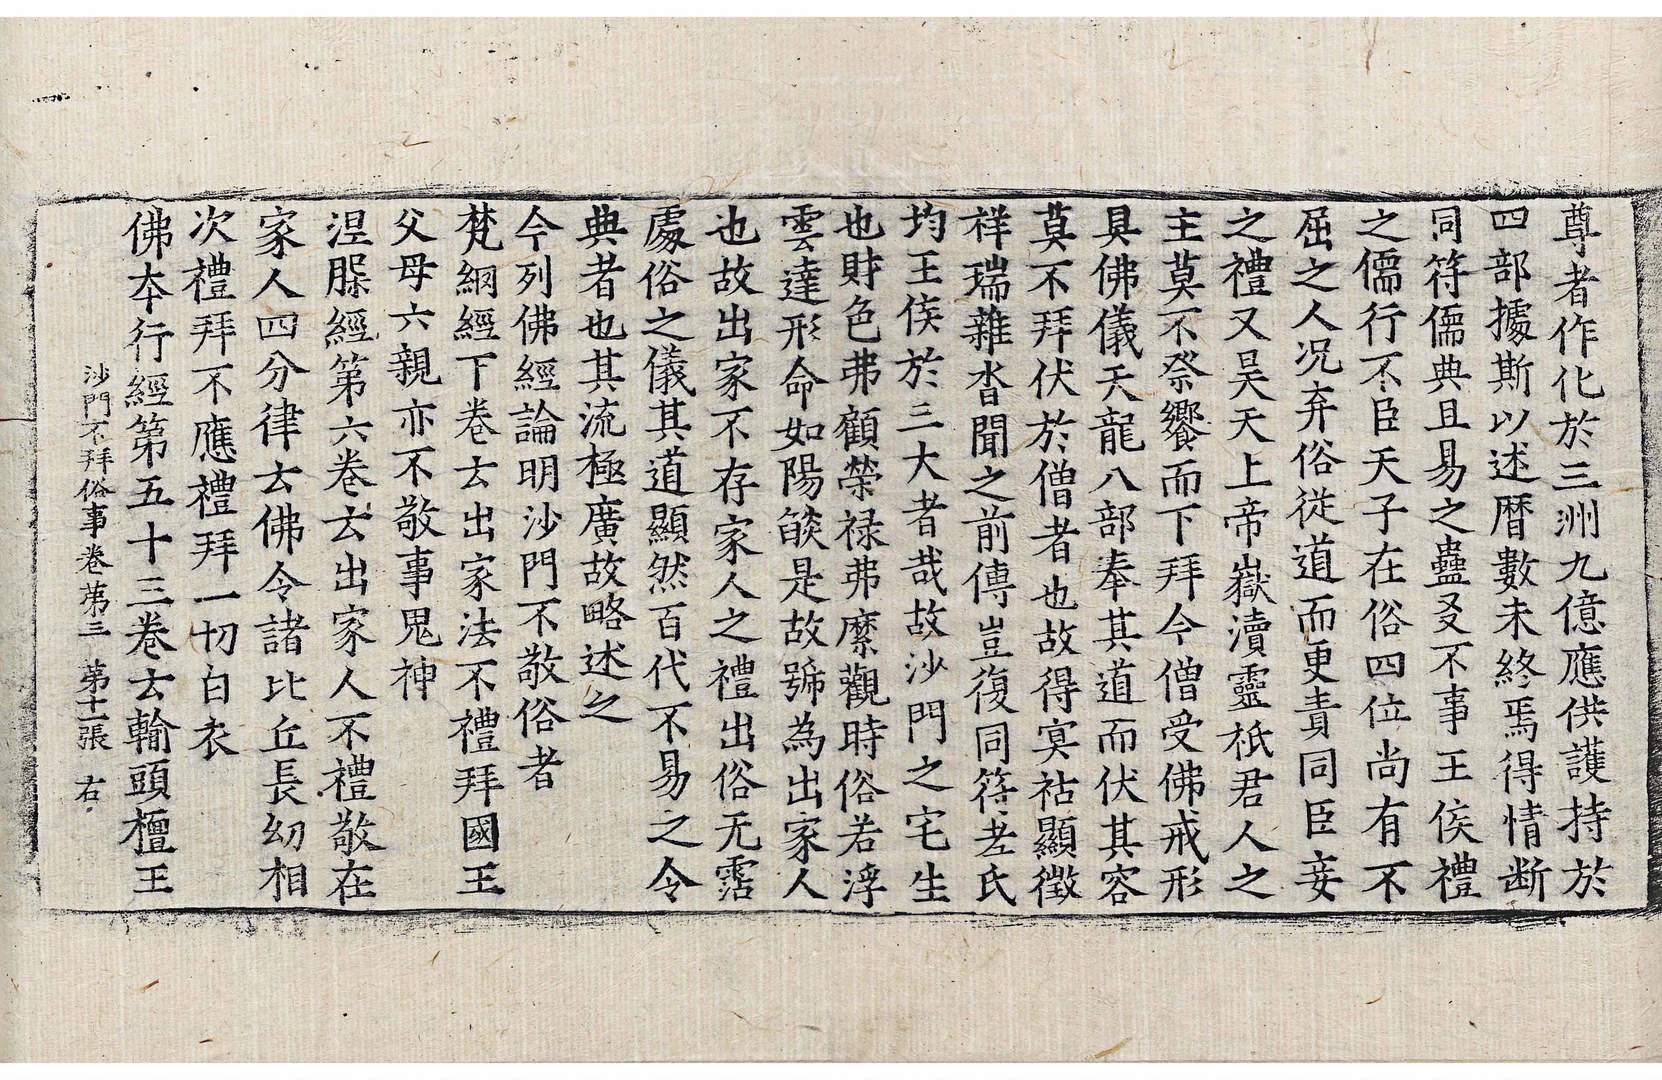 尊者作化於三洲九億應供護持於
四部據斯以述曆數未終焉得情断
同符儒典且易之蠱爻不事王侯禮
之儒行不臣天子在俗四位尚有不
屈之人况弃俗従道而更責同臣妾
之禮又昊天上帝嶽瀆靈祇君人之
主莫不祭饗而下拜今僧受佛戒形
具佛儀天龍八部奉其道而伏其容
莫不拜伏於僧者也故得冥祐顯徵
祥瑞雜沓聞之前傳豈復同符老氏
均王侯於三大者哉故沙門之宅生
也財色弗顧榮禄弗縻觀時俗若浮
雲達形命如陽𦦨是故號為出家人
也故出家不存家人之禮出俗无霑
處俗之儀其道顯然百代不易之令
典者也其流極廣故略述之
今列佛經論明沙門不敬俗者
梵網經下卷云出家法不禮拜國王
父母六親亦不敬事鬼神
涅槃經第六卷云出家人不禮敬在
家人四分律云佛令諸比丘長幼相
次禮拜不應禮拜一切白衣
佛夲行經第五十三卷云輸頭檀王
沙門不拜俗事卷苐三 苐十一張 右